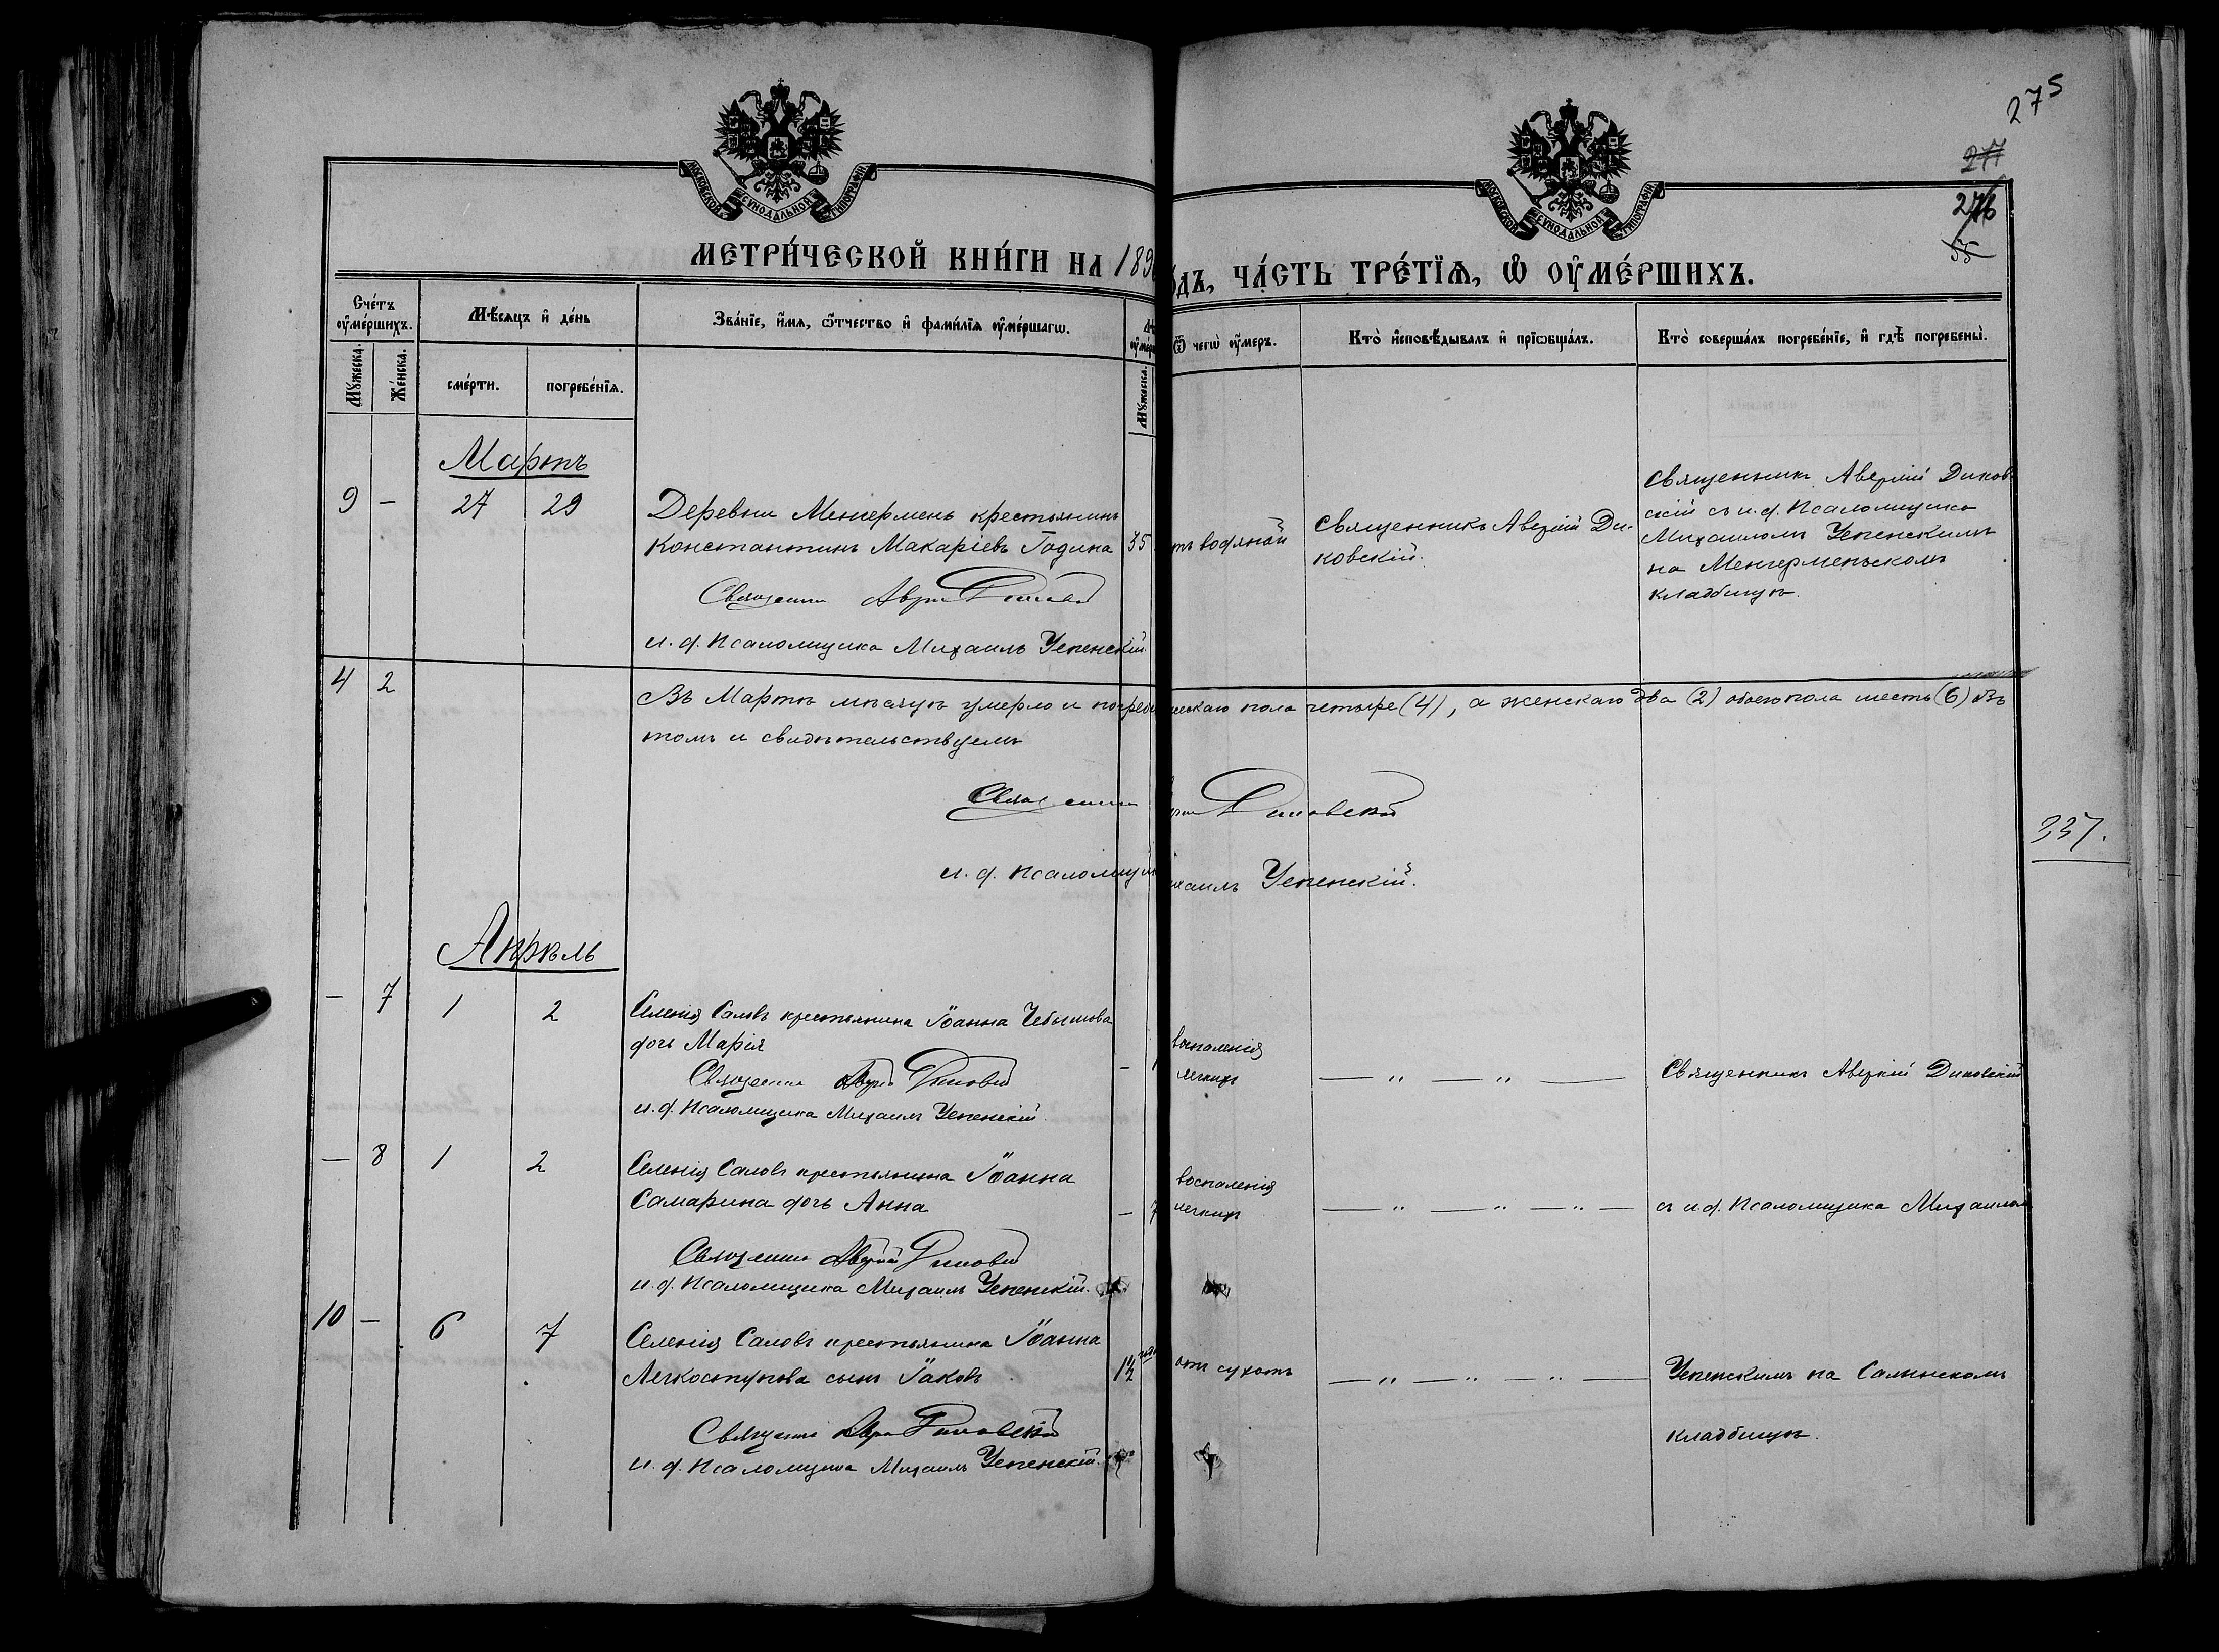 275
277
276
55
МОСКОВСКОЙ СѴНОДАЛЬНОЙ ТИПОГРАФІИ
МОСКОВСКОЙ СѴНОДАЛЬНОЙ ТИПОГРАФІИ
МЕТРИ́ЧЕСКОЙ КНИ́ГИ НА 189
ОДЪ, ЧА́СТЬ ТРЕ́ТЇѦ, Ѿ ОУМЕ́РШИХЪ.
Сче́тъ оуме́ршихъ.
Мѣ́сяцъ и де́нь
Зва́нїе, и́мѧ, ѻ҆́тчество и фами́лїѧ оуме́ршагѡ.
Ѿ чегѡ̀ оу́меръ.
Кто̀ исповѣ́дывалъ и прїѡбща́лъ.
Кто̀ соверша́лъ погребе́нїе, и гдѣ̀ погребены̀.
Мꙋ́жеска.
Же́нска.
сме́рти.
погребе́нїѧ.
Мꙋ́жеска.
Мартъ
9 — 27 29
Деревни Менгермень крестьянинъ
Константинъ Макаріевъ Година 35
Священникъ
и. д. Псаломщика Михаилъ Успенскій
тъ водяной
Священникъ Аверкій Ди-
ковскій.
Священникъ Аверкій Диков
скій съ и. д. Псаломщика
Михаиломъ Успенскимъ
на Менгерменьскомъ
кладбищѣ.
4 2
Въ Мартѣ мѣсяцѣ умерло и погреб
жескаго пола четыре (4), а женскаго два (2) обоего пола шесть (6) Въ
томъ и свидѣтельствуемъ
Священникъ
Диковскій
и. д. Псаломщи
ихаилъ Успенскій.
337.
Апрѣль
— 7 1 2
Селенія Салов крестьянина Іоанна Чебышова
дочь Марія
Священникъ Аверкій Диковскій
и. д. Псаломщика Михаилъ Успенскій.
—
воспаленія
легкихъ
— „ — „ —
Священникъ Аверкій Диковскій
— 8 1 2
Селенія Салов крестьянина Іоанна
Самарина дочь Анна
— 7
Священникъ Аверкій Диковскій
и. д. Псаломщика Михаилъ Успенскій.
воспаленія
легкихъ
— „ — „ — „ —
съ и. д. Псаломщика Михаилом
10 — 6 7
Селенія Салов крестьянина Іоанна
Легкоступова сынъ Іаковъ
1½
Священникъ Диковскій
и. д. Псаломщика Михаилъ Успенскій.
отъ сухотъ
— „ — „ — „ —
Успенскимъ на Салынскомъ
кладбищѣ.